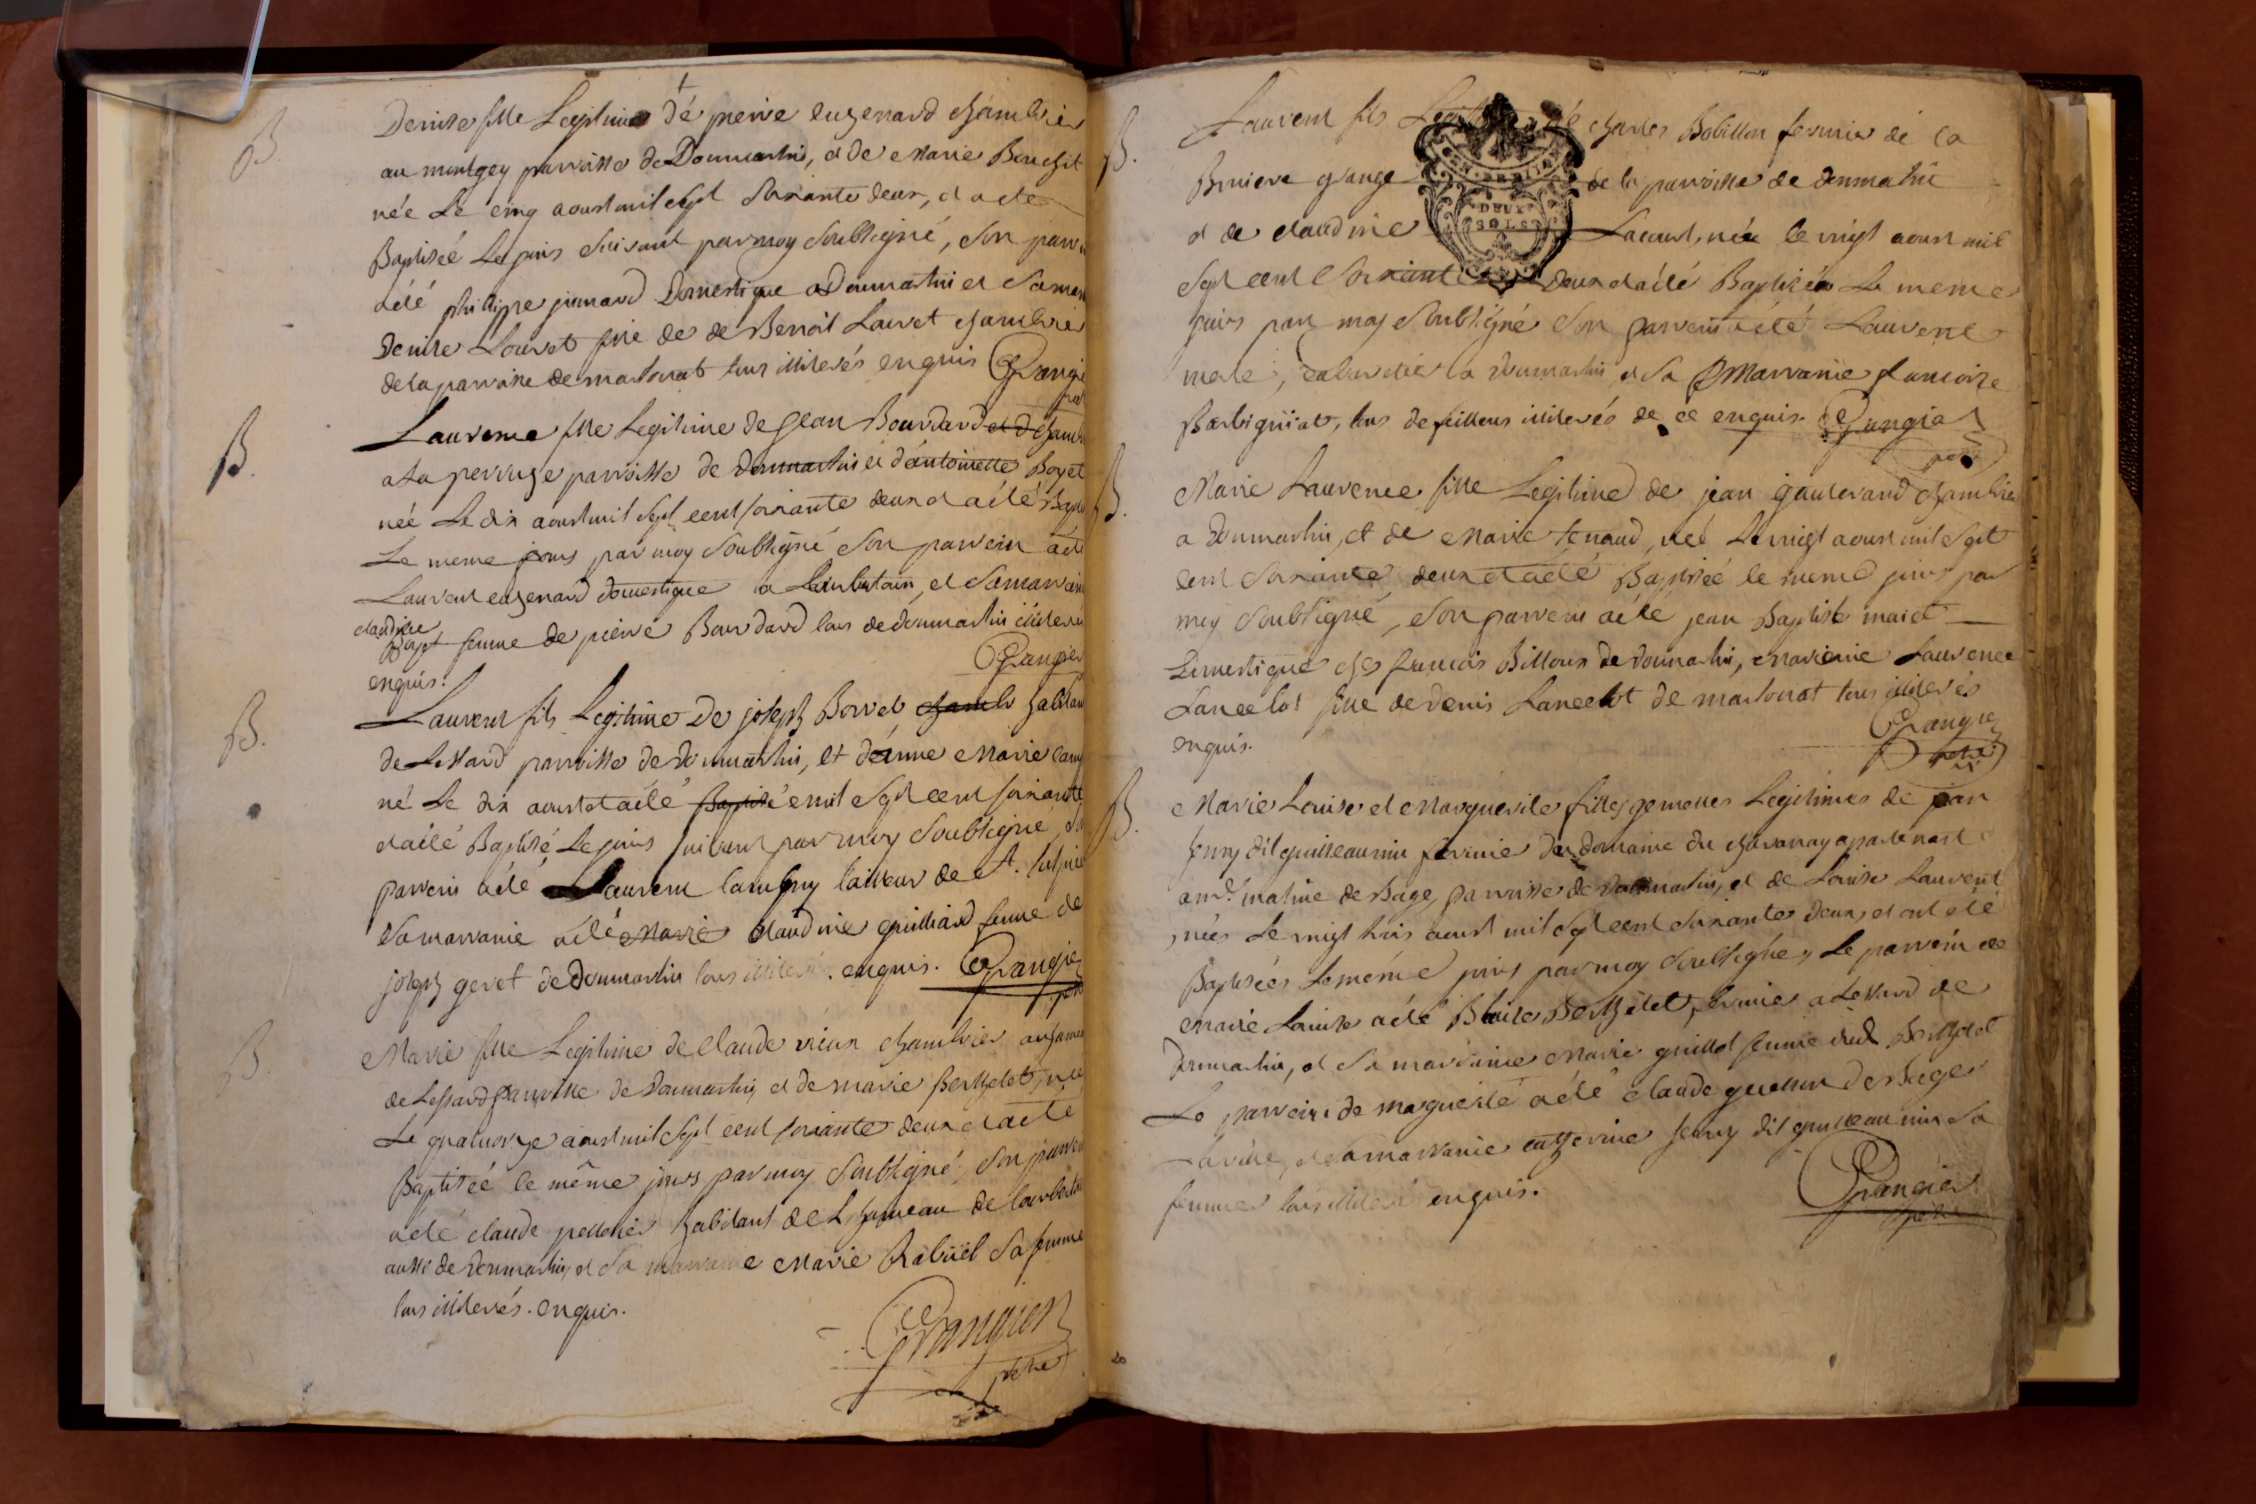 B.
Denise fille Legitime dé pierre eugenard chambrier
au montgey parroisse de Donmartin, et de Marie Bouchet
née Le cinq aoust mil sept soixante deux, et a ete
Baptisée Le jour suivant par moy soubsigné, son parr
a été philippe jimard Domestique a Donmartin et sa mar
Denise Louvet fille de de Benoit Louvet chambrier
de la parroisse de martonat tous illiterés enquis Grangie
B.
Laurence fille Legitime de Jean Bourdard et de chamb
a La perruze parroisse de Donmartin et d'antoinette Boyet
née Le dix aoust mil sept cent soixante deux et a été Bapti
Le meme jours par moy soubsigné son parrein a été
Laurent eugenard domestique a , et sa marrain
claudine
femme de pierre Bourdard tous de donmartin illiterés
enquis. Grangier
B.
Laurent fils Legitime De joseph Borret chamb habitan
de Lessard parroisse de Donmartin, et d'anne Marie
né Le dix aoust et a été Baptisé mil sept cent soixante
et a été Baptisé Le jours suivant par moy soubsigné, s
parrein a été Laurent tailleur de St.
sa marraine a été Marie Claudine guilliard femme de
joseph geret de Donmartin tous illiteré. enquis. Grangier
B.
Marie fille Legitime de Claude vieux chambrier au hamea
de Lessard parroisse de Donmartin, et de marie Berthelet, née
Le quatorze aoust mil sept cent soixante deux et a été
Baptisée le même jours par moy soubsigné, son parrein
a été claude pelletier habitant de L'hameau de
aussi de Donmartin, et sa marraine Marie Rabuël sa femme
tous illiterés. enquis.
Grangier
ptre
B.
Laurent fils charles Bobillon fermier de la
Bruiere grange de la parroisse de donmartin
GEN.
DEUX
SOLS
et de claudine Lacourt, née le vingt aoust mil
sept cent soixante deux et a été Baptisée Le meme
jours par moy soubsigné son parrein a été Laurent
a Donmartin, et sa Marraine francoise
Barbiguiat, tous de illiterés de ce enquis. Grangier
B.
Marie Laurence fille Legitime de jean gauterand chambrier
a Donmartin, et de Marie tenaud, neé Le vingt aoust mil sept
cent soixante deux et a été Baptisée le meme jours par
moy soubsigné, son parrein a été jean Baptiste maret
Domestique ches francois Billoux de Donmartin, Laurence
Lancelot fille de denis Lancelot de martonat tous illiterés
enquis. Grangier
ptre
B.
Marie Louise et Marguerite filles gemelles Legitimes de jean
ferry dit guilleaumin fermier du domaine du chavannay apartenant
a mr. de Bage, parroisse de Donmartin, et de Louise Laurent
, nées Le vingt trois aoust mil sept cent soixante deux, et ont été
Baptisées Le méme jours par moy soubsigné, Le parrein de
Marie Louise a été Blaise Berthelet, fermier a Lessard de
Donmartin, et sa marraine Marie guillot femme dud Berthelet
Le parrein de Marguerite a été Claude de Bage
, et sa marraine catherine ferry dit guilleaumin sa
femme tous illiteré enquis. Grangier
ptre
20